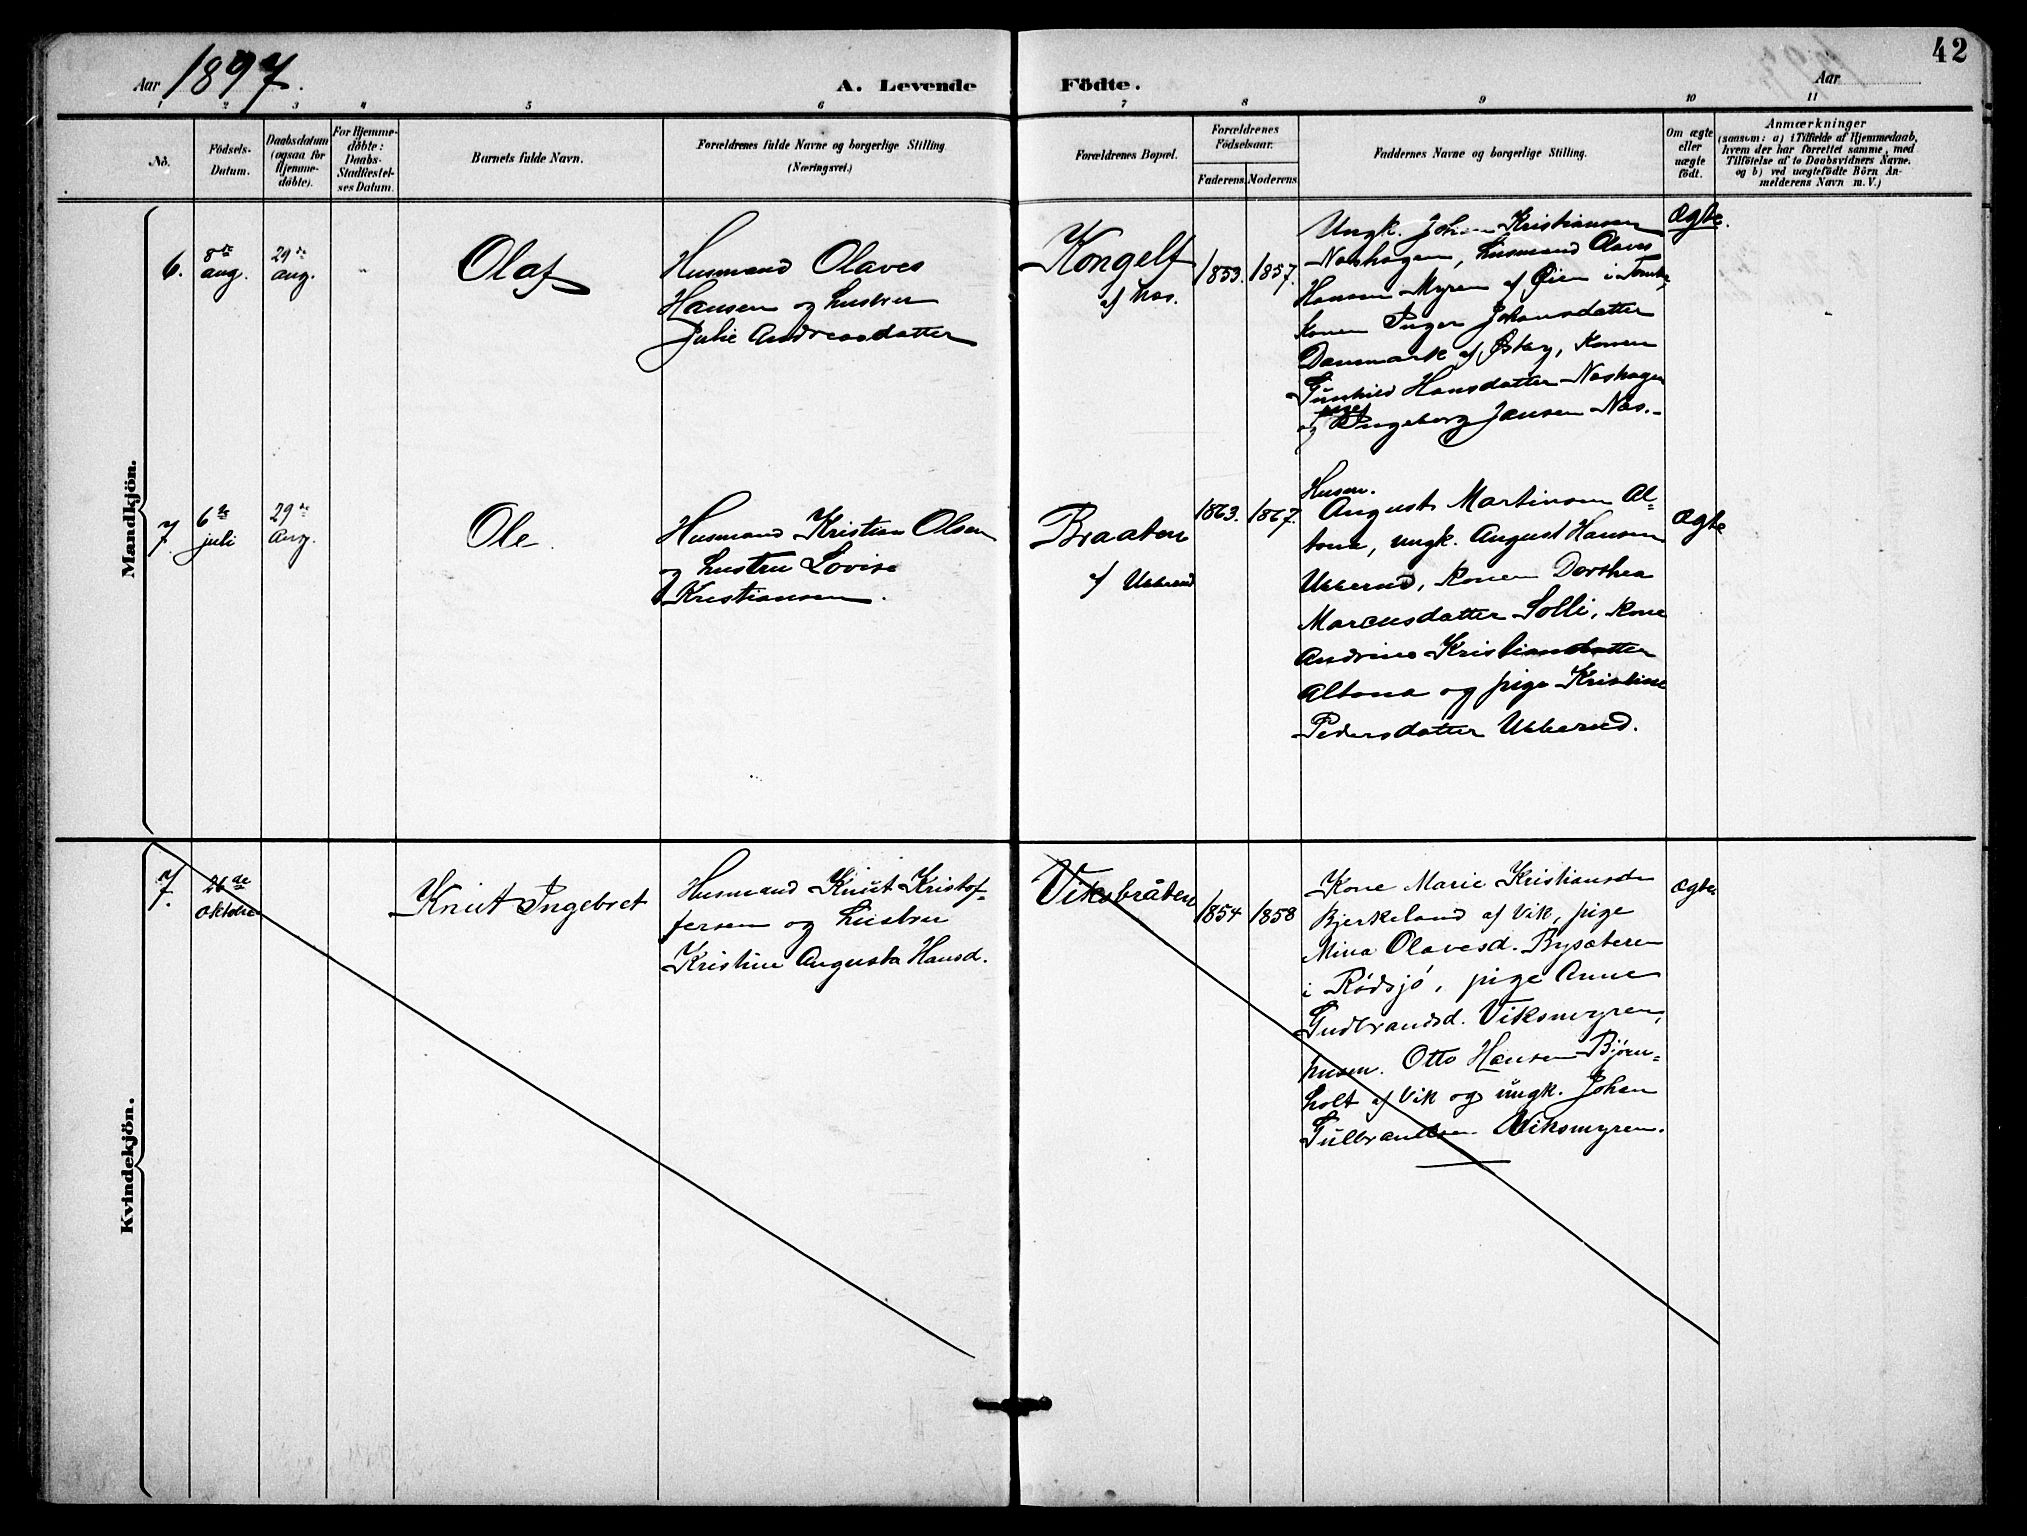 42
Aar 1897.
A. Levende Födte.
Aar
1 2 3 4 5 6 7 8 9 10 11
No.
Födsels-
Datum.
Daabsdatum
(ogsaa for
Hjemme-
døbte).
For Hjemme-
døbte:
Daabs-
Stadfæstel-
ses Datum.
Barnets fulde Navn.
Forældrenes fulde Navne og borgerlige Stilling
(Næringsvei.)
Forældrenes Bopæl.
Forældrenes
Födselsaar.
Faderens. Moderens.
Faddernes Navne og borgerlige Stilling.
Om ægte
eller
uægte
födt.
Anmærkninger
(saasom: a) i Tilfælde af Hjemmedaab,
hvem der har forrettet samme, med
Tilföielse af to Daabsvidners Navne.
og b) ved uægtefödte Börn An-
melderens Navn m. V.)
Mandkjön.
6.
8de
aug.
29de
aug.
Olaf
Husmand Olaves
Hansen og hustru
Julie Andreasdatter
Kongelf
af Nas.
1853. 1857.
Ungk. Johan Kristiansen
Nashagen, husmand Olaves
Hansen Myren af Øien i
konen Inger Johansdatter
Danmark af Østby, konen
Gunhild Hansdatter Nashagen
pige
og Ingeborg Jansen Nas.
Ægte.
7.
6te
juli
29de
Aug.
Ole
Husmand Kristian Olsen
og hustru Lovise
Kristiansen.
Braaten
af Ukkerud
1863. 1867.
Husm.
August Martinsen Al-
tona, ungk. August Hansen
Ukkerud, konen Dorthea
Marcusdatter Solli, kone
Andrine Kristiansdatter
Altona og pige Kristine
Pedersdatter Ukkerud.
Ægte
Kvindekjön.
7.
26de
oktober
Knut Ingebret
Husmand Knut Kristof-
fersen og hustru
Kristine Augusta Hansd.
Viksbråten
1854 1858
Kone Marie Kristiansd.
Bjerkeland af Vik, pige
Mina Olavesd. Bysæteren
i Rødsjö, pige Anne
Gudbrandsd. Viksmyren,
husm. Otto Hansen Björn-
holt af Vik og ungk. Johan
Gulbrandsen Viksmyren.
Ægte